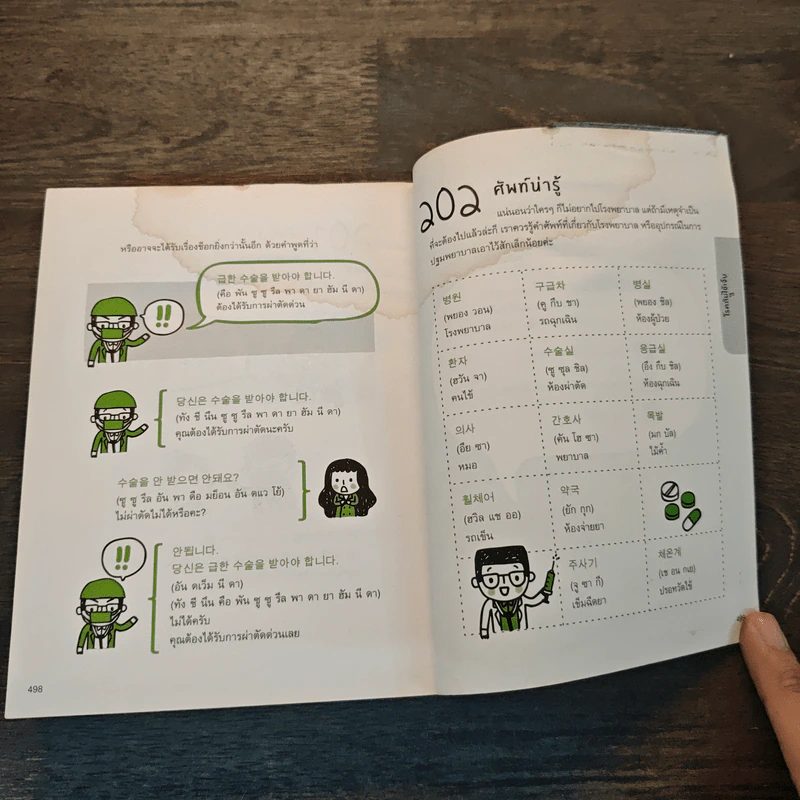 พรืออาจจะได้รับเรื่องช็อกยิ่งกว่านั้นอีก ด้วยคำพูดที่ว่า
급한 수술을 받아야 합니다.
(คือ พัน ซู ซู รึล พา ดา ยา ฮัม นี ดา)
ต้องได้รับการผ่าตัดด่วน
!!
당신은 수술을 받아야 합니다.
(ทัง ชี นึน ซู ซู รึล พา ดา ยา ฮัม นี ดา)
คุณต้องได้รับการผ่าตัดนะครับ
수술을 안 받으면 안돼요?
(ซู ซู รึล อัน พา ดือ มยอน อัน ดแว โย้)
ไม่ผ่าตัดไม่ได้หรือคะ?
!!
안됩니다.
당신은 급한 수술을 받아야 합니다.
(อัน ดเว็ม นี ดา)
(ทัง ชี นึน คือ พัน ซู ซู รึล พา ดา ยา ฮัม นี ดา)
ไม่ได้ครับ
คุณต้องได้รับการผ่าตัดด่วนเลย
498
202 ศัพท์น่ารู้
แน่นอนว่าใครๆ ก็ไม่อยากไปโรงพยาบาล แต่ถ้ามีเหตุจำเป็น
ที่จะต้องไปแล้วล่ะก็ เราควรรู้คำศัพท์ที่เกี่ยวกับโรงพยาบาล หรืออุปกรณ์ในการ
ปฐมพยาบาลเอาไว้สักเล็กน้อยค่ะ
병원 구급차 병실
(พยอง วอน) (คู กึบ ชา) (พยอง ชิล)
โรงพยาบาล รถฉุกเฉิน ห้องผู้ป่วย
환자 수술실 응급실
(ฮวัน จา) (ซู ซุล ชิล) (อึง กึบ ชิล)
คนไข้ ห้องผ่าตัด ห้องฉุกเฉิน
의사 간호사 목발
(อึย ซา) (คัน โฮ ซา) (มก บัล)
หมอ พยาบาล ไม้ค้ำ
휠체어 약국
(ฮวิล แช ออ) (ยัก กุก)
รถเข็น ห้องจ่ายยา
주사기 체온계
(จู ซา กี) (เช อน กเย)
เข็มฉีดยา ปรอทวัดไข้